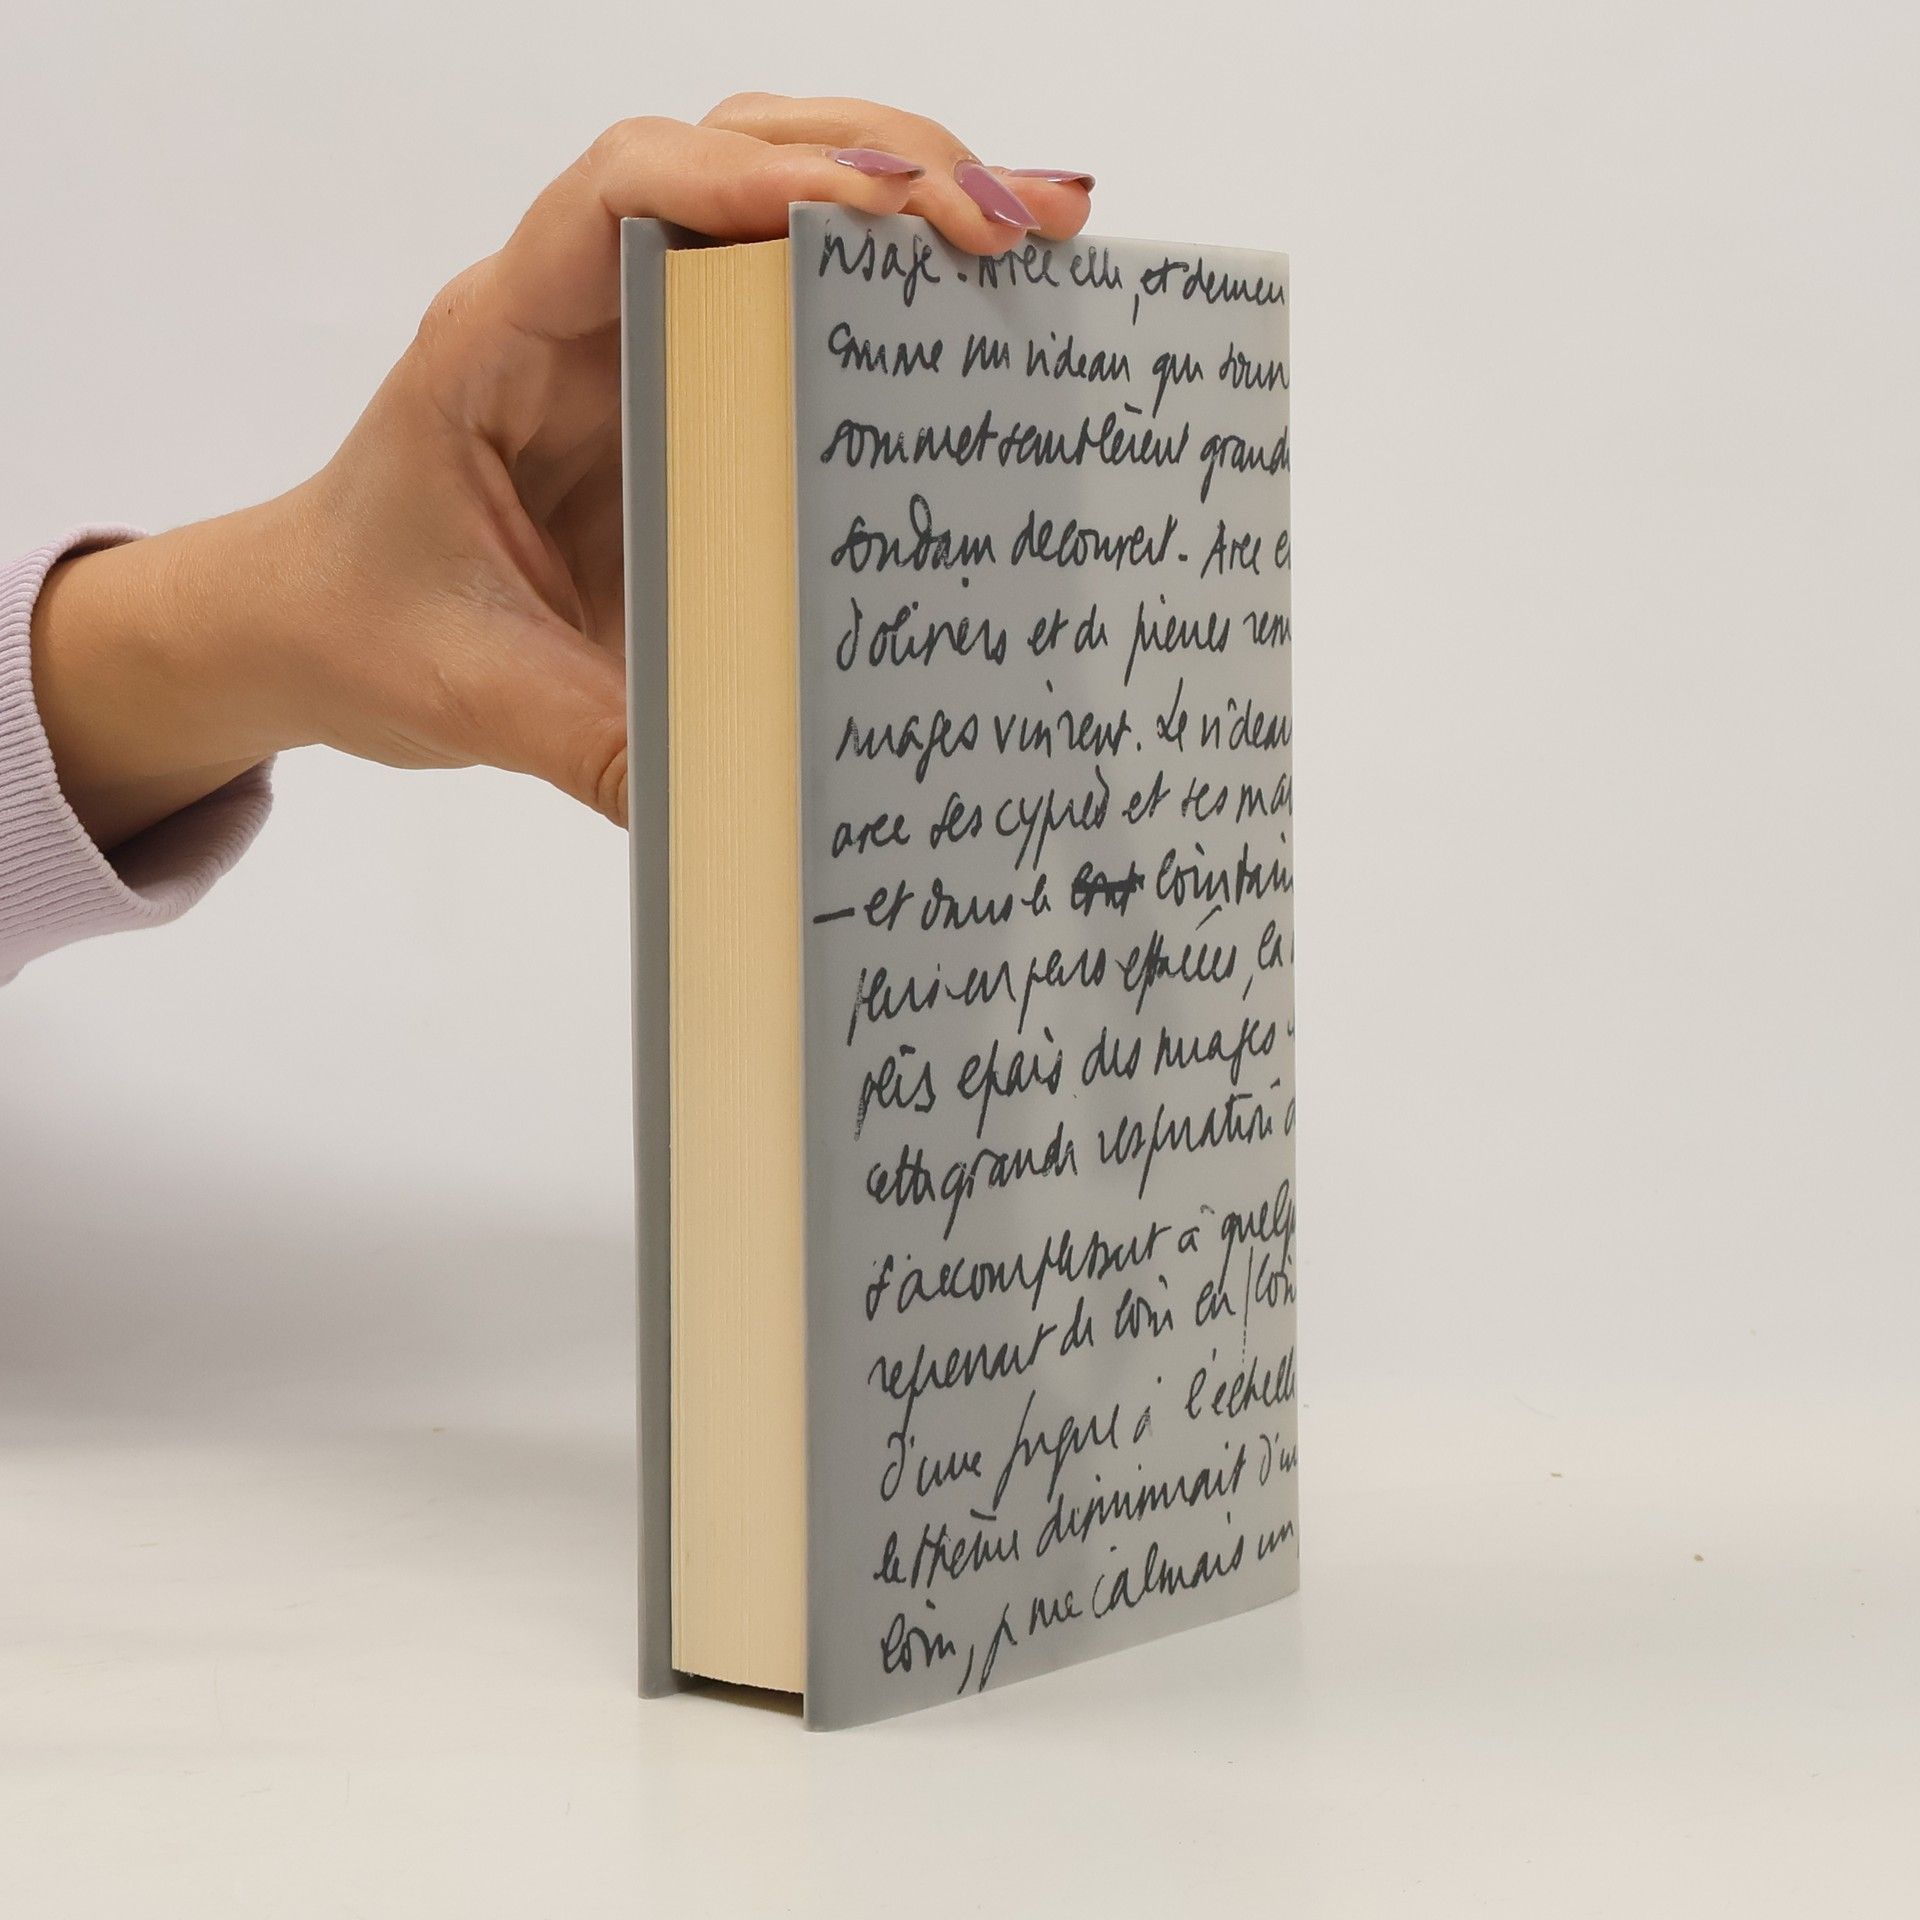 visage. Avec elle, et demeu
comme un rideau qui s'ouv
sommet semblèrent grand
soudain découvert. Avec e
d'oliviers et de pierres rem
nuages vinrent. Le rideau
avec ses cyprès et ses ma
— et dans le lointain
plus en plus effacées, la
plis épais des nuages
cette grande respiration d
s'accomplissait à quelq
reprenait de loin en loin
d'une fugue à l'échelle
le thème diminuait d'un
loin, je me calmais un